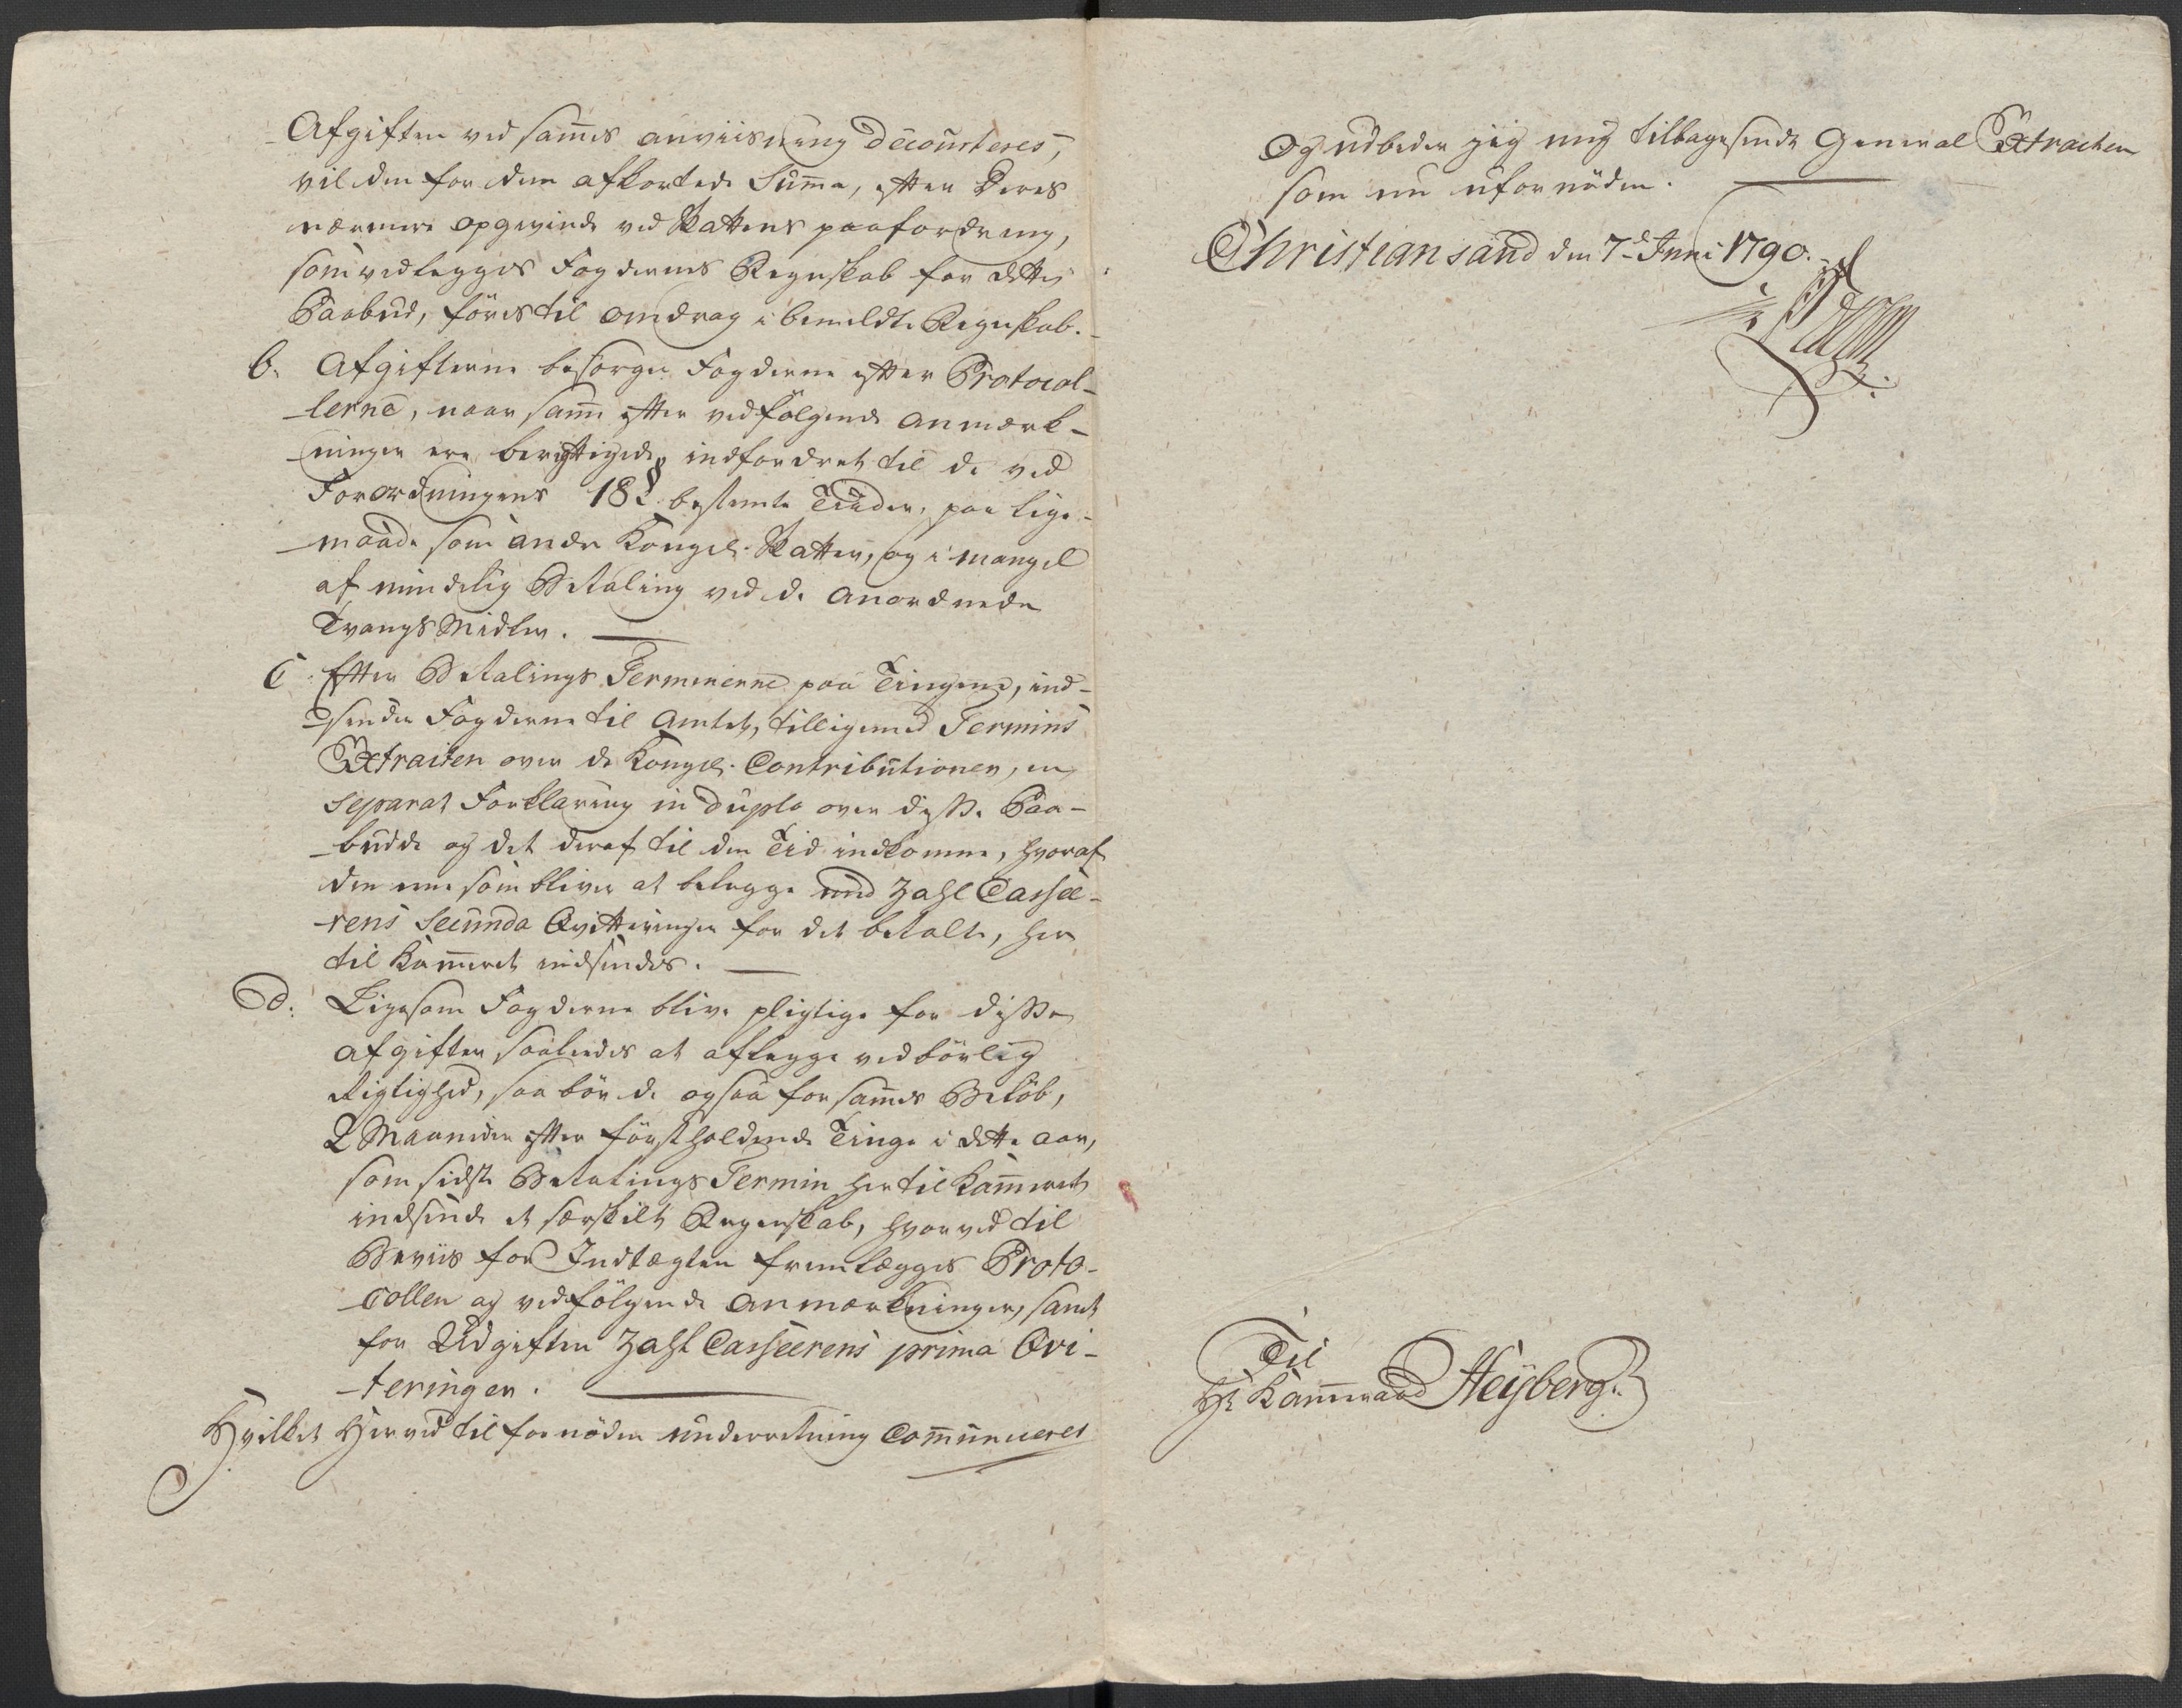 Afgiften ved sam̄es anviisning decourteres,
vil den for dem afkortede Sum̄a, efter Deres
nærmere opgivende ved Skattens paafordring,
som vedlegges Fogdernes Regnskab for dette
Paabud, föres til omdrag i bemeldte Regnskab.
b. Afgifterne besörger Fogderne efter Protocol-
lerne, naar sam̄e efter vedfölgende anmærk-
ninger ere berigtigede, indfordret til de ved
Forordningens 18 § bestemte Tiider, paa lige-
maade som andre Kongel. Skatter, og i mangel
af mindelig Betaling ved de anordnede
Tvangs Midler.
C. Efter Betalings Terminerne paa Tingene, ind-
sender Fogderne til Amtet, tilligemed Termins
Extracten over de Kongel. Contributioner, en
separat Forklaring in duplo over disse Paa-
budde og det deraf til den Tid indkomne, hvoraf
den eene som bliver at belegge med Zahl Cassee-
rens Secunda Qvitteringer for det betalte, her
til Kam̄eret indsendes.
d. Ligesom Fogderne blive pligtige for disse
afgifter saaledes at aflegge vedbörlig
Rigtighed, saa bör de ogsaa for sam̄es Belöb,
2 Maaneder efter först holdende Tinge i dette aar,
som sidste Betalings Termin her til Kam̄eret
indsende et særskilt Regenskab, hvorved til
Beviis for Indtægten fremlægges Proto-
collen og vedfölgende anmærkninger, samt
for Udgiften Zahl Casseerens prima Qvi-
teringer.
Hvilket Herved til fornöden underretning Com̄uniceres
Og udbeder jeg mig tilbagesendt General Extracten
som nu ufornöden.
Christiansand den 7de Juni 1790.
Til
Hr Kam̄erraad Heyberg.